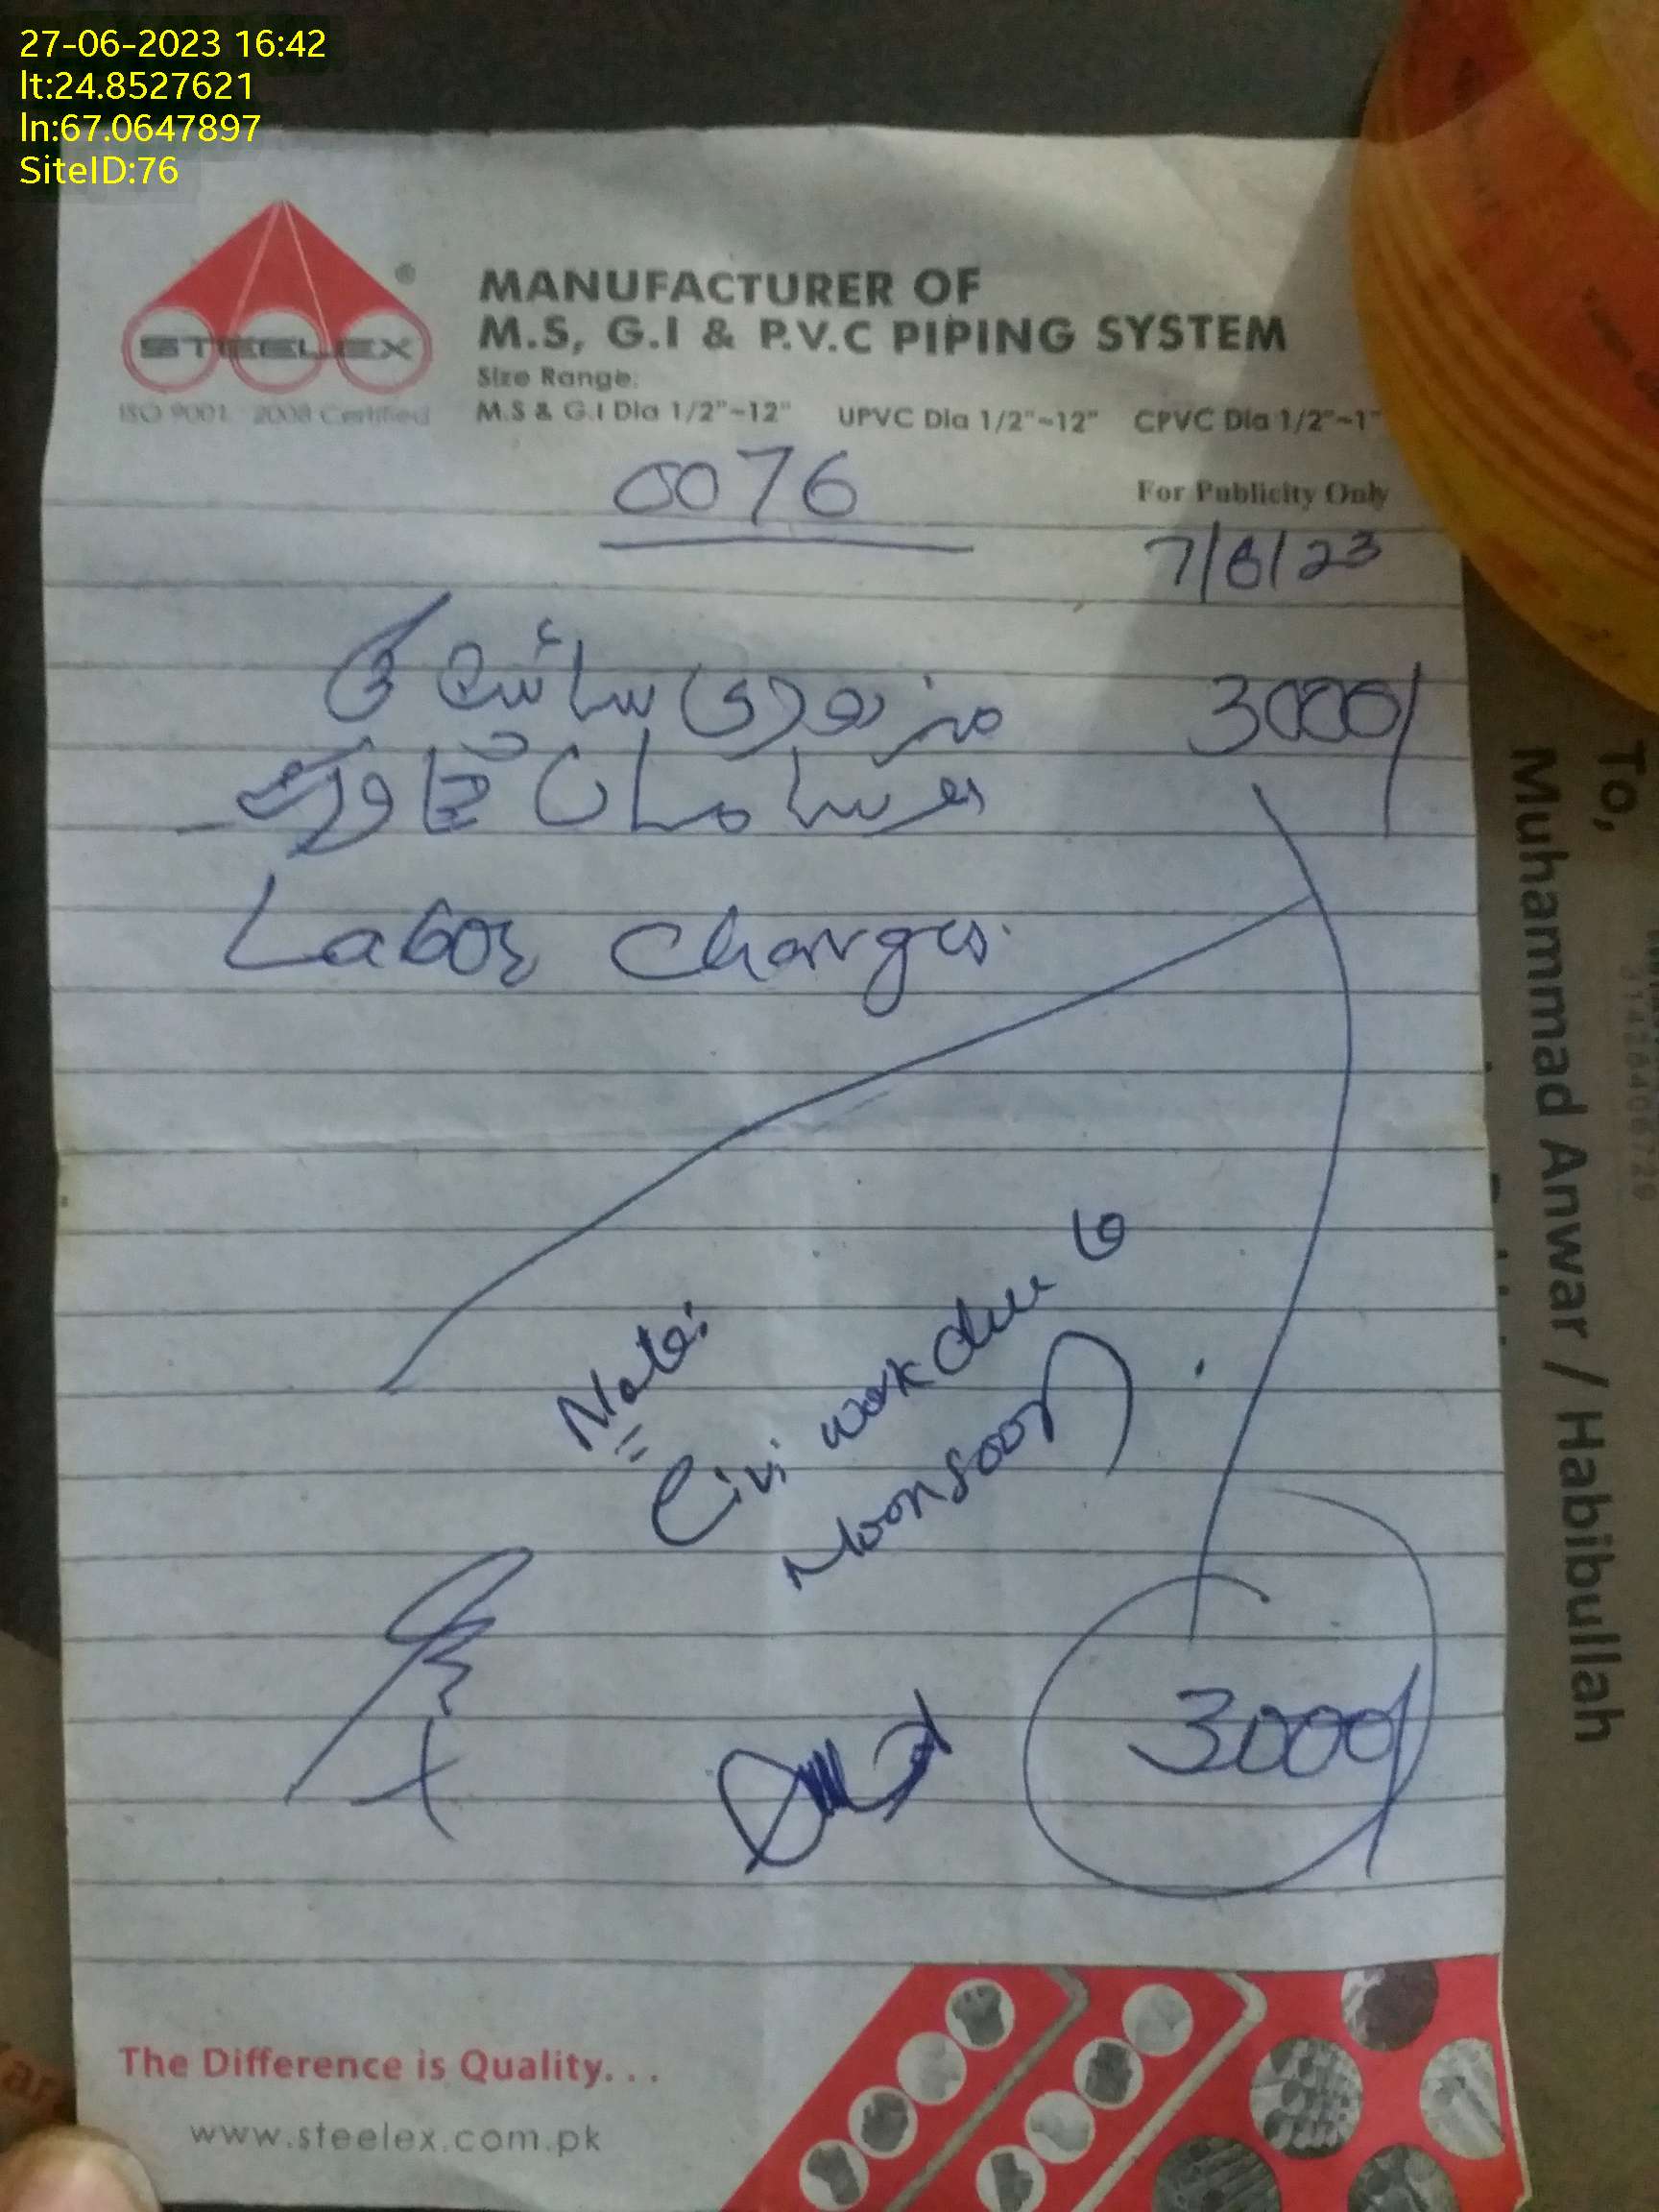 27-06-2023 16:42
lt:24.8527621
ln:67.0647897
SiteID:76
STEELEX
®
ISO 9001 : 2008 Certified
MANUFACTURER OF
M.S, G.I & P.V.C PIPING SYSTEM
Size Range:
M.S & G.I Dia 1/2"~12" UPVC Dia 1/2"~12" CPVC Dia 1/2"~1"
For Publicity Only
0076
7/6/23
مزدوری سائٹ کی 3000/
سامان
Labor Charges.
Note:
Civi work due to
Moonsoon.
3000/
The Difference is Quality...
www.steelex.com.pk
To,
Muhammad Anwar / Habibullah